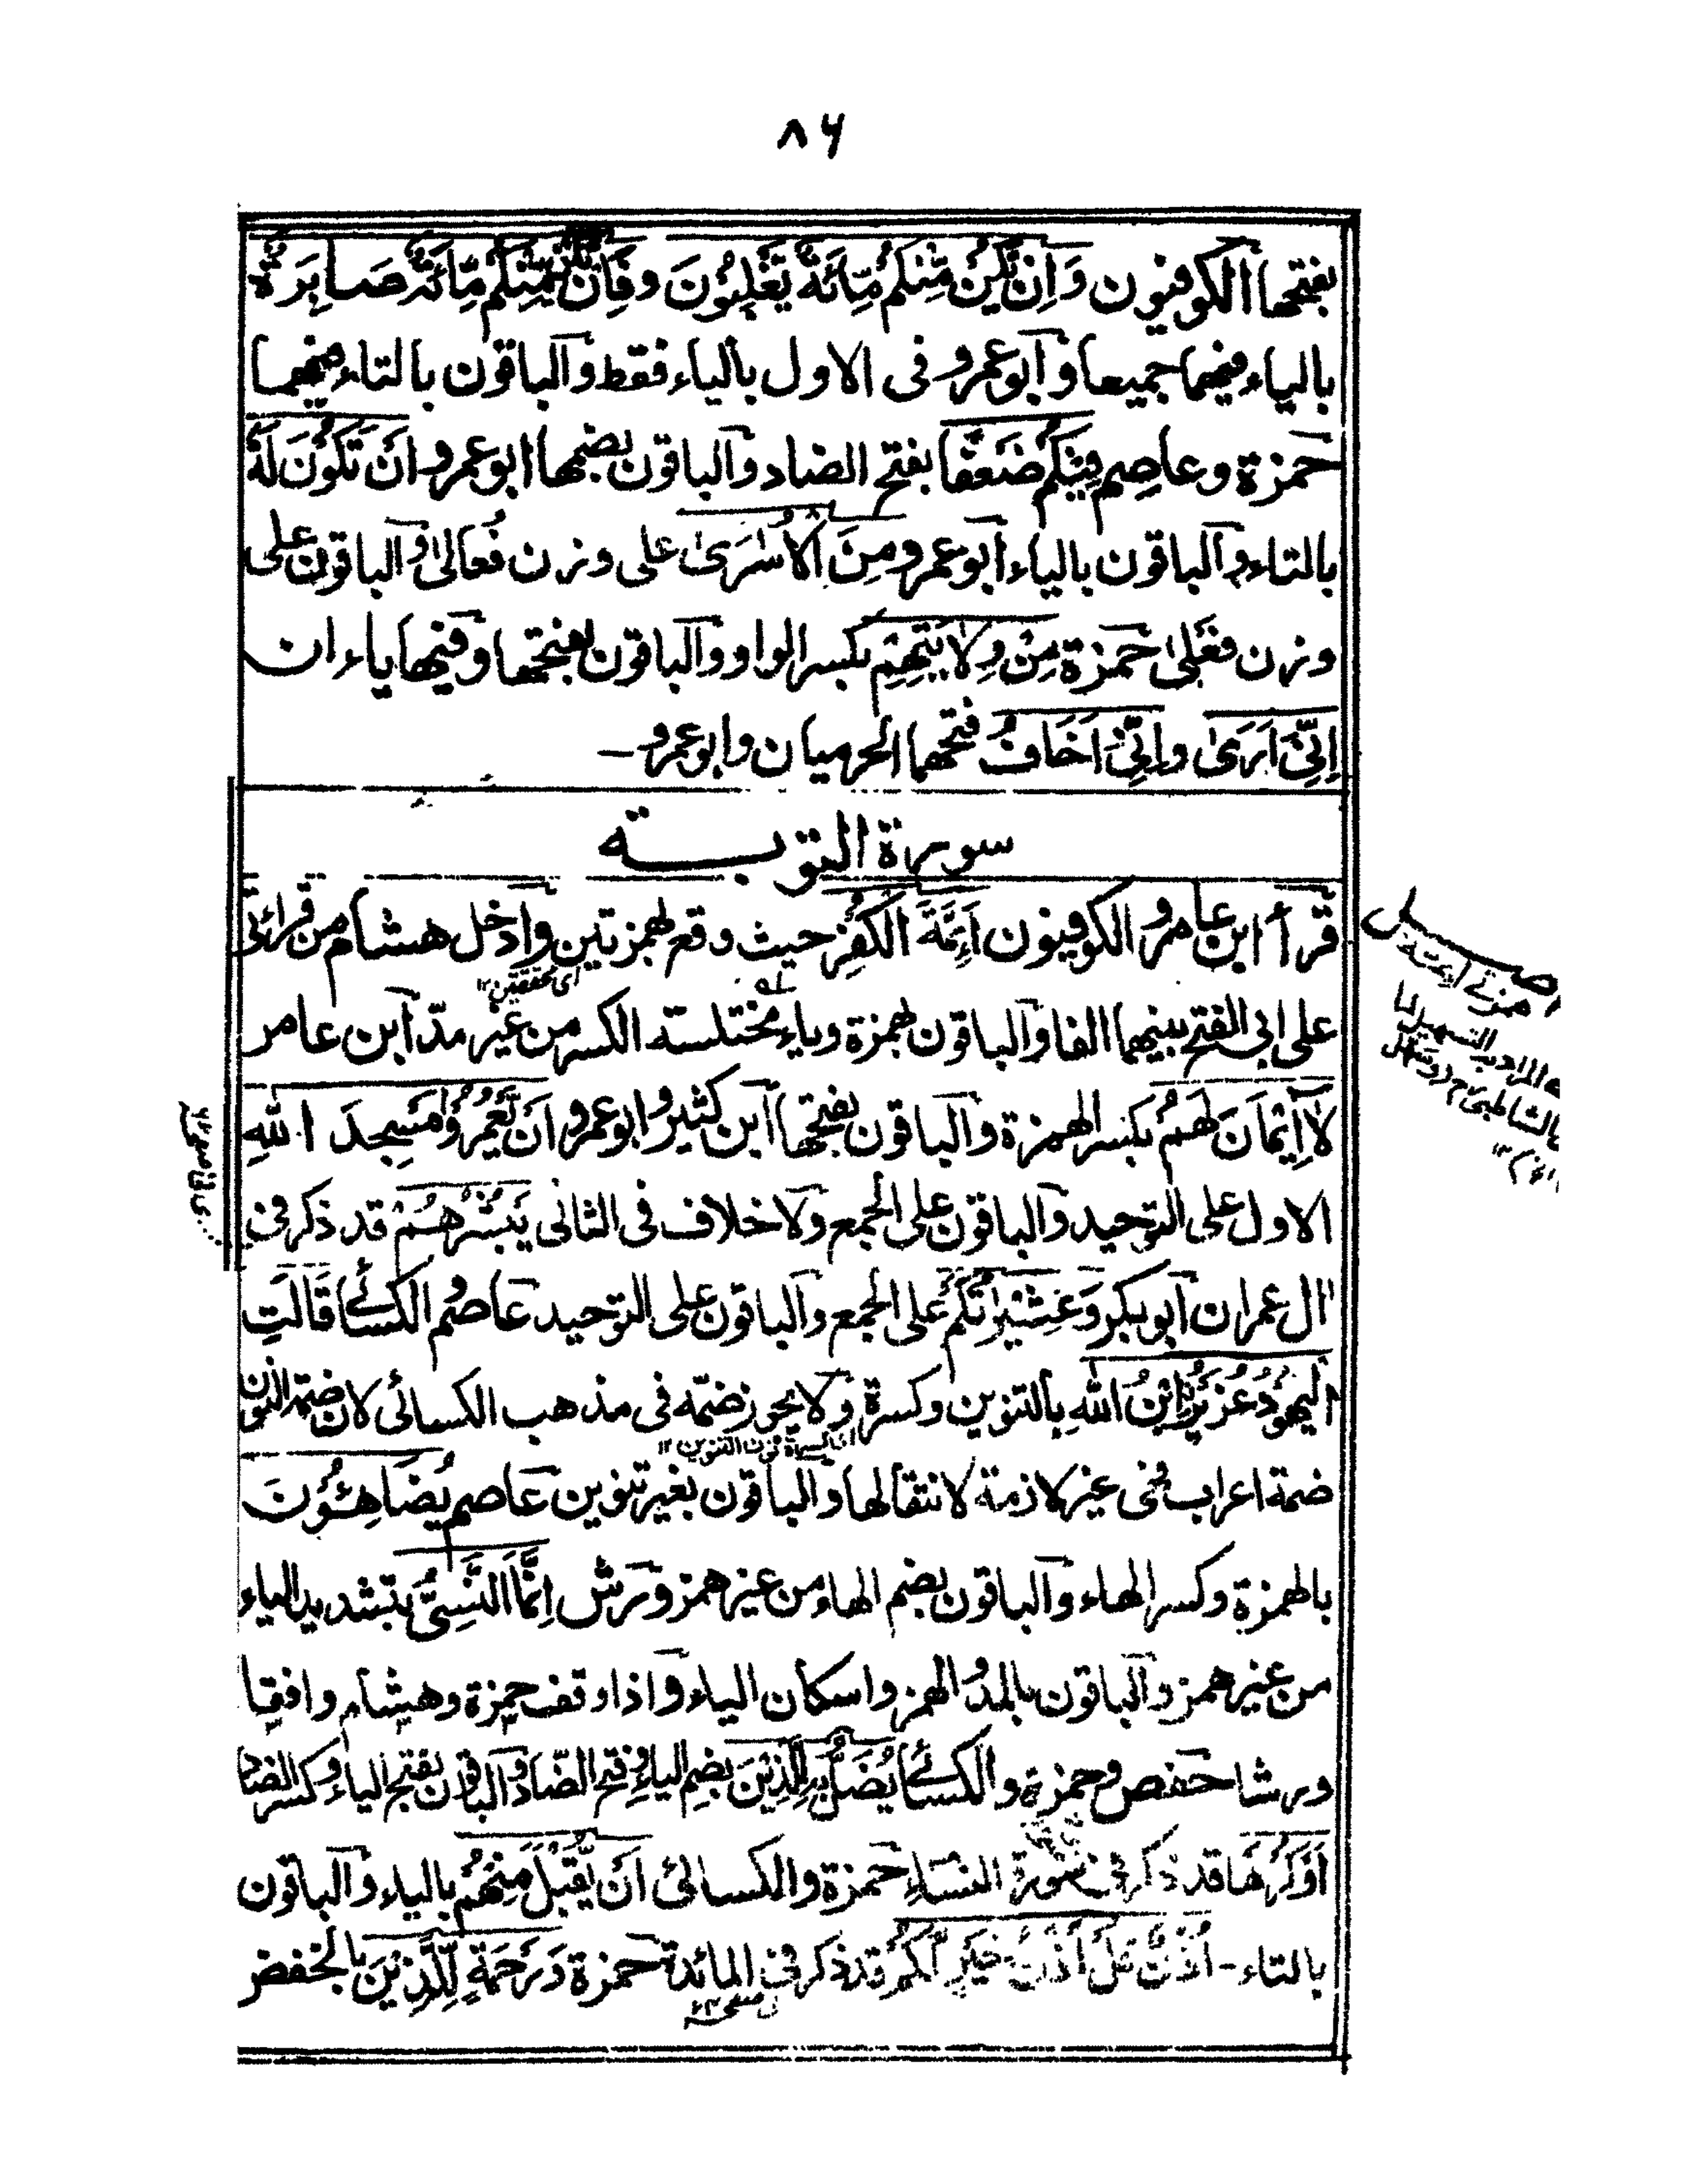 ٨٦
بفتحها الكوفيون وَاِنْ يَّكُنْ مِّنْكُمْ مِّائَةٌ يَغْلِبُوْنَ و فَاِنْ يَّكُنْ مِّنْكُمْ مِّائَةٌ صَابِرَةٌ
بالياء فيهما جميعا و ابو عمرو فى الاول بالياء فقط والباقون بالتاء فيهما
حمزة وعاصم فِيْكُمْ ضَعْفًا بفتح الضاد والباقون بضمها ابو عمرو اَنْ تَكُوْنَ لَهٗ
بالتاء والباقون بالياء ابو عمرو مِنَ الْاُسٰرٰى على وزن فُعالىٰ والباقون على
وزن فَعْلىٰ حمزة مِنْ وِلَايَتِهِمْ بكسر الواو والباقون بفتحها و فيها ياء ان
اِنِّىْ اَرٰى و اِنِّىْ اَخَافُ فتحهما الحرميان وابو عمرو -
سورة التوبة
قرأ ابن عامر و الكوفيون اَئِمَّةَ الْكُفْرِ حيث وقع بهمزتين وادخل هشام من قراءتى
اى محققتين ١٢
على ابى الفتح بينهما الفا والباقون بهمزة وياء مختلسة الكسر من غير مدّ ابن عامر
لَآ اِيْمَانَ لَهُمْ بكسر الهمزة والباقون بفتحها ابن كثير و ابو عمرو اَنْ يَّعْمُرُوْا مَسٰجِدَ اللّٰهِ
الاول على التوحيد والباقون على الجمع ولا خلاف فى الثانى يُبَشِّرُهُمْ قد ذكر فى
اٰل عمران ابو بكر وَعَشِيْرَاتُكُمْ على الجمع والباقون على التوحيد عاصم و الكسائى قَالَتِ
الْيَهُوْدُ عُزَيْرُۨ ابْنُ اللّٰهِ بالتنوين وكسرة ولا يجوز ضمّه فى مذهب الكسائى لان ضمة النون
ضمة اعراب فهى غير لازمة لانتقالها والباقون بغير تنوين عاصم يُضَاهِئُوْنَ
بالهمزة وكسر الهاء والباقون بضم الهاء من غير همز ورش اِنَّمَا النَّسِىُّ بتشديد الياء
من غير همز والباقون بالمد و الهمز واسكان الياء واذا وقف حمزة وهشام وافقا
ورشا حفص وحمزة والكسائى يُضَلُّ بِهِ الَّذِيْنَ بضم الياء وفتح الضاد والباقون بفتح الياء وكسر الضاد
اَوْ كَرْهًا قد ذكر فى سورة النساء حمزة والكسائى اَنْ يُّقْبَلَ مِنْهُمْ بالياء والباقون
بالتاء - اُذُنٌ قُلْ اُذُنُ خَيْرٍ لَّكُمْ قد ذكر فى المائدة حمزة وَرَحْمَةٍ لِّلَّذِيْنَ بالخفض